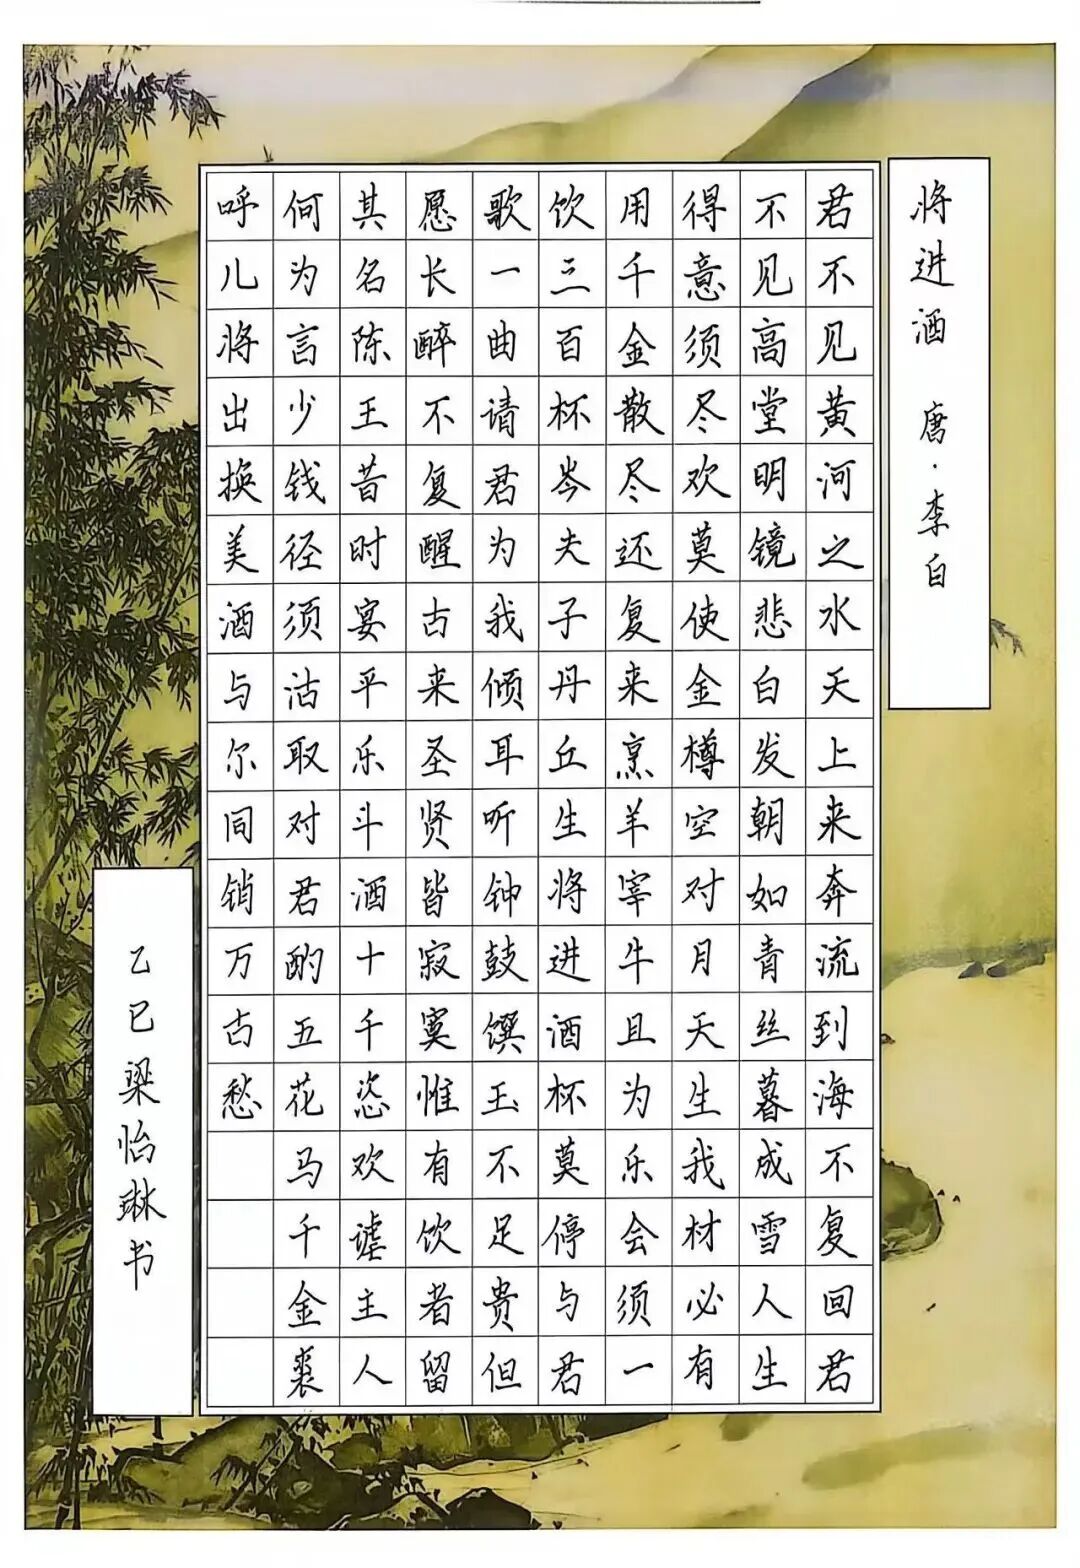 将进酒 唐·李白
君不见黄河之水天上来奔流到海不复回君
不见高堂明镜悲白发朝如青丝暮成雪人生
得意须尽欢莫使金樽空对月天生我材必有
用千金散尽还复来烹羊宰牛且为乐会须一
饮三百杯岑夫子丹丘生将进酒杯莫停与君
歌一曲请君为我倾耳听钟鼓馔玉不足贵但
愿长醉不复醒古来圣贤皆寂寞惟有饮者留
其名陈王昔时宴平乐斗酒十千恣欢谑主人
何为言少钱径须沽取对君酌五花马千金裘
呼儿将出换美酒与尔同销万古愁
乙巳梁怡琳书